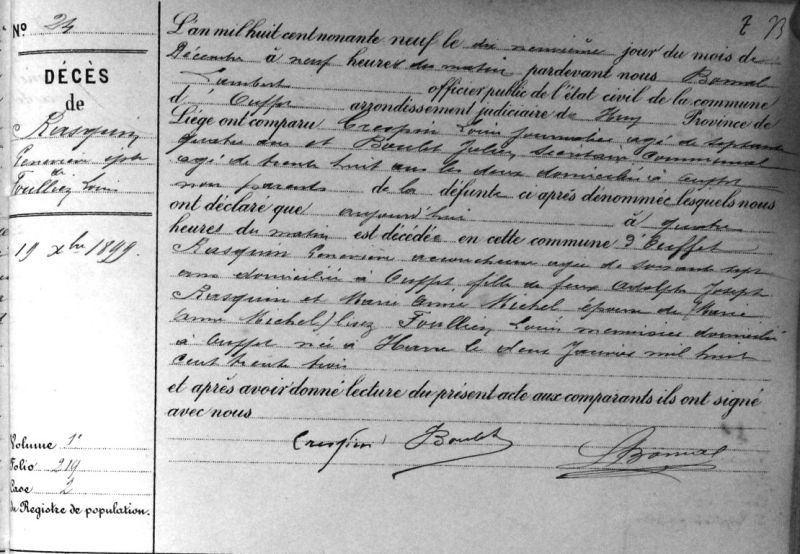 7 73
N° 24
DÉCÈS
de
Rasquin
Genevieve épse
de
Foullien Louis
19 xbre 1899.
Volume 1r
Folio 219
Case 2
du Registre de population.
L'an mil huit cent nonante neuf le dix neuvième jour du mois de
Décembre à neuf heures du matin pardevant nous Bomal
Lambert officier public de l'état civil de la commune
d' Ouffet arrondissement judiciaire de Huy Province de
Liége ont comparu Crespin Louis journalier agé de septante
quatre ans et Boulet Julien, secrétaire Communal
agé de trente huit ans les deux domiciliés à Ouffet
non parents de la défunte ci après dénommée lesquels nous
ont déclaré que aujourd'hui à quatre
heures du matin est décédée en cette commune d'Ouffet
Rasquin Genevieve accoucheuse agée de soixante sept
ans domiciliée à Ouffet fille de feux Adolphe Joseph
Rasquin et Marie Anne Michel épouse de (Marie
Anne Michel) lisez Foullien Louis menuisier domicilié
à Ouffet née à Harre le deux Janvier mil huit
cent trente trois
et après avoir donné lecture du présent acte aux comparants ils ont signé
avec nous
Crespin Boulet
LBomal